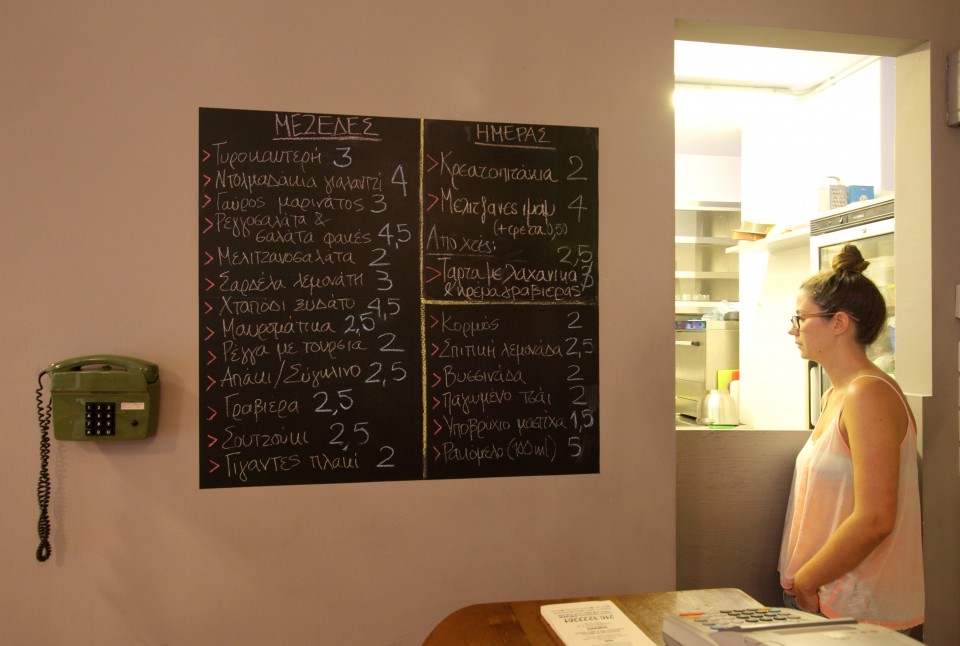 ΜΕΖΕΔΕΣ
> Τυροκαυτερή 3
> Ντολμαδάκια γιαλαντζί 4
> Γαύρος μαρινάτος 3
> Ρεγγοσαλάτα &
σαλάτα φακές 4,5
> Μελιτζανοσαλάτα 2
> Σαρδέλα λεμονάτη 3
> Χταπόδι ξυδάτο 4,5
> Μαυρομάτικα 2,5
> Ρέγγα με τουρσιά 2
> Απάκι/Σύγκλινο 2,5
> Γραβιέρα 2,5
> Σουτζούκι 2,5
> Γίγαντες πλακί 2
ΗΜΕΡΑΣ
> Κρεατοπιτάκια 2
> Μελιτζάνες ιμάμ 4
(+φέτα 0,50
Από χτες: 2,5
> Τάρτα με λαχανικά
& κρέμα γραβιέρας
> Κορμός 2
> Σπιτική λεμονάδα 2,5
> Βυσσινάδα 2
> Παγωμένο τσάι 2
> Υποβρύχιο μαστίχα 1,5
> Ρακόμελο (100ml) 5
210 3223301